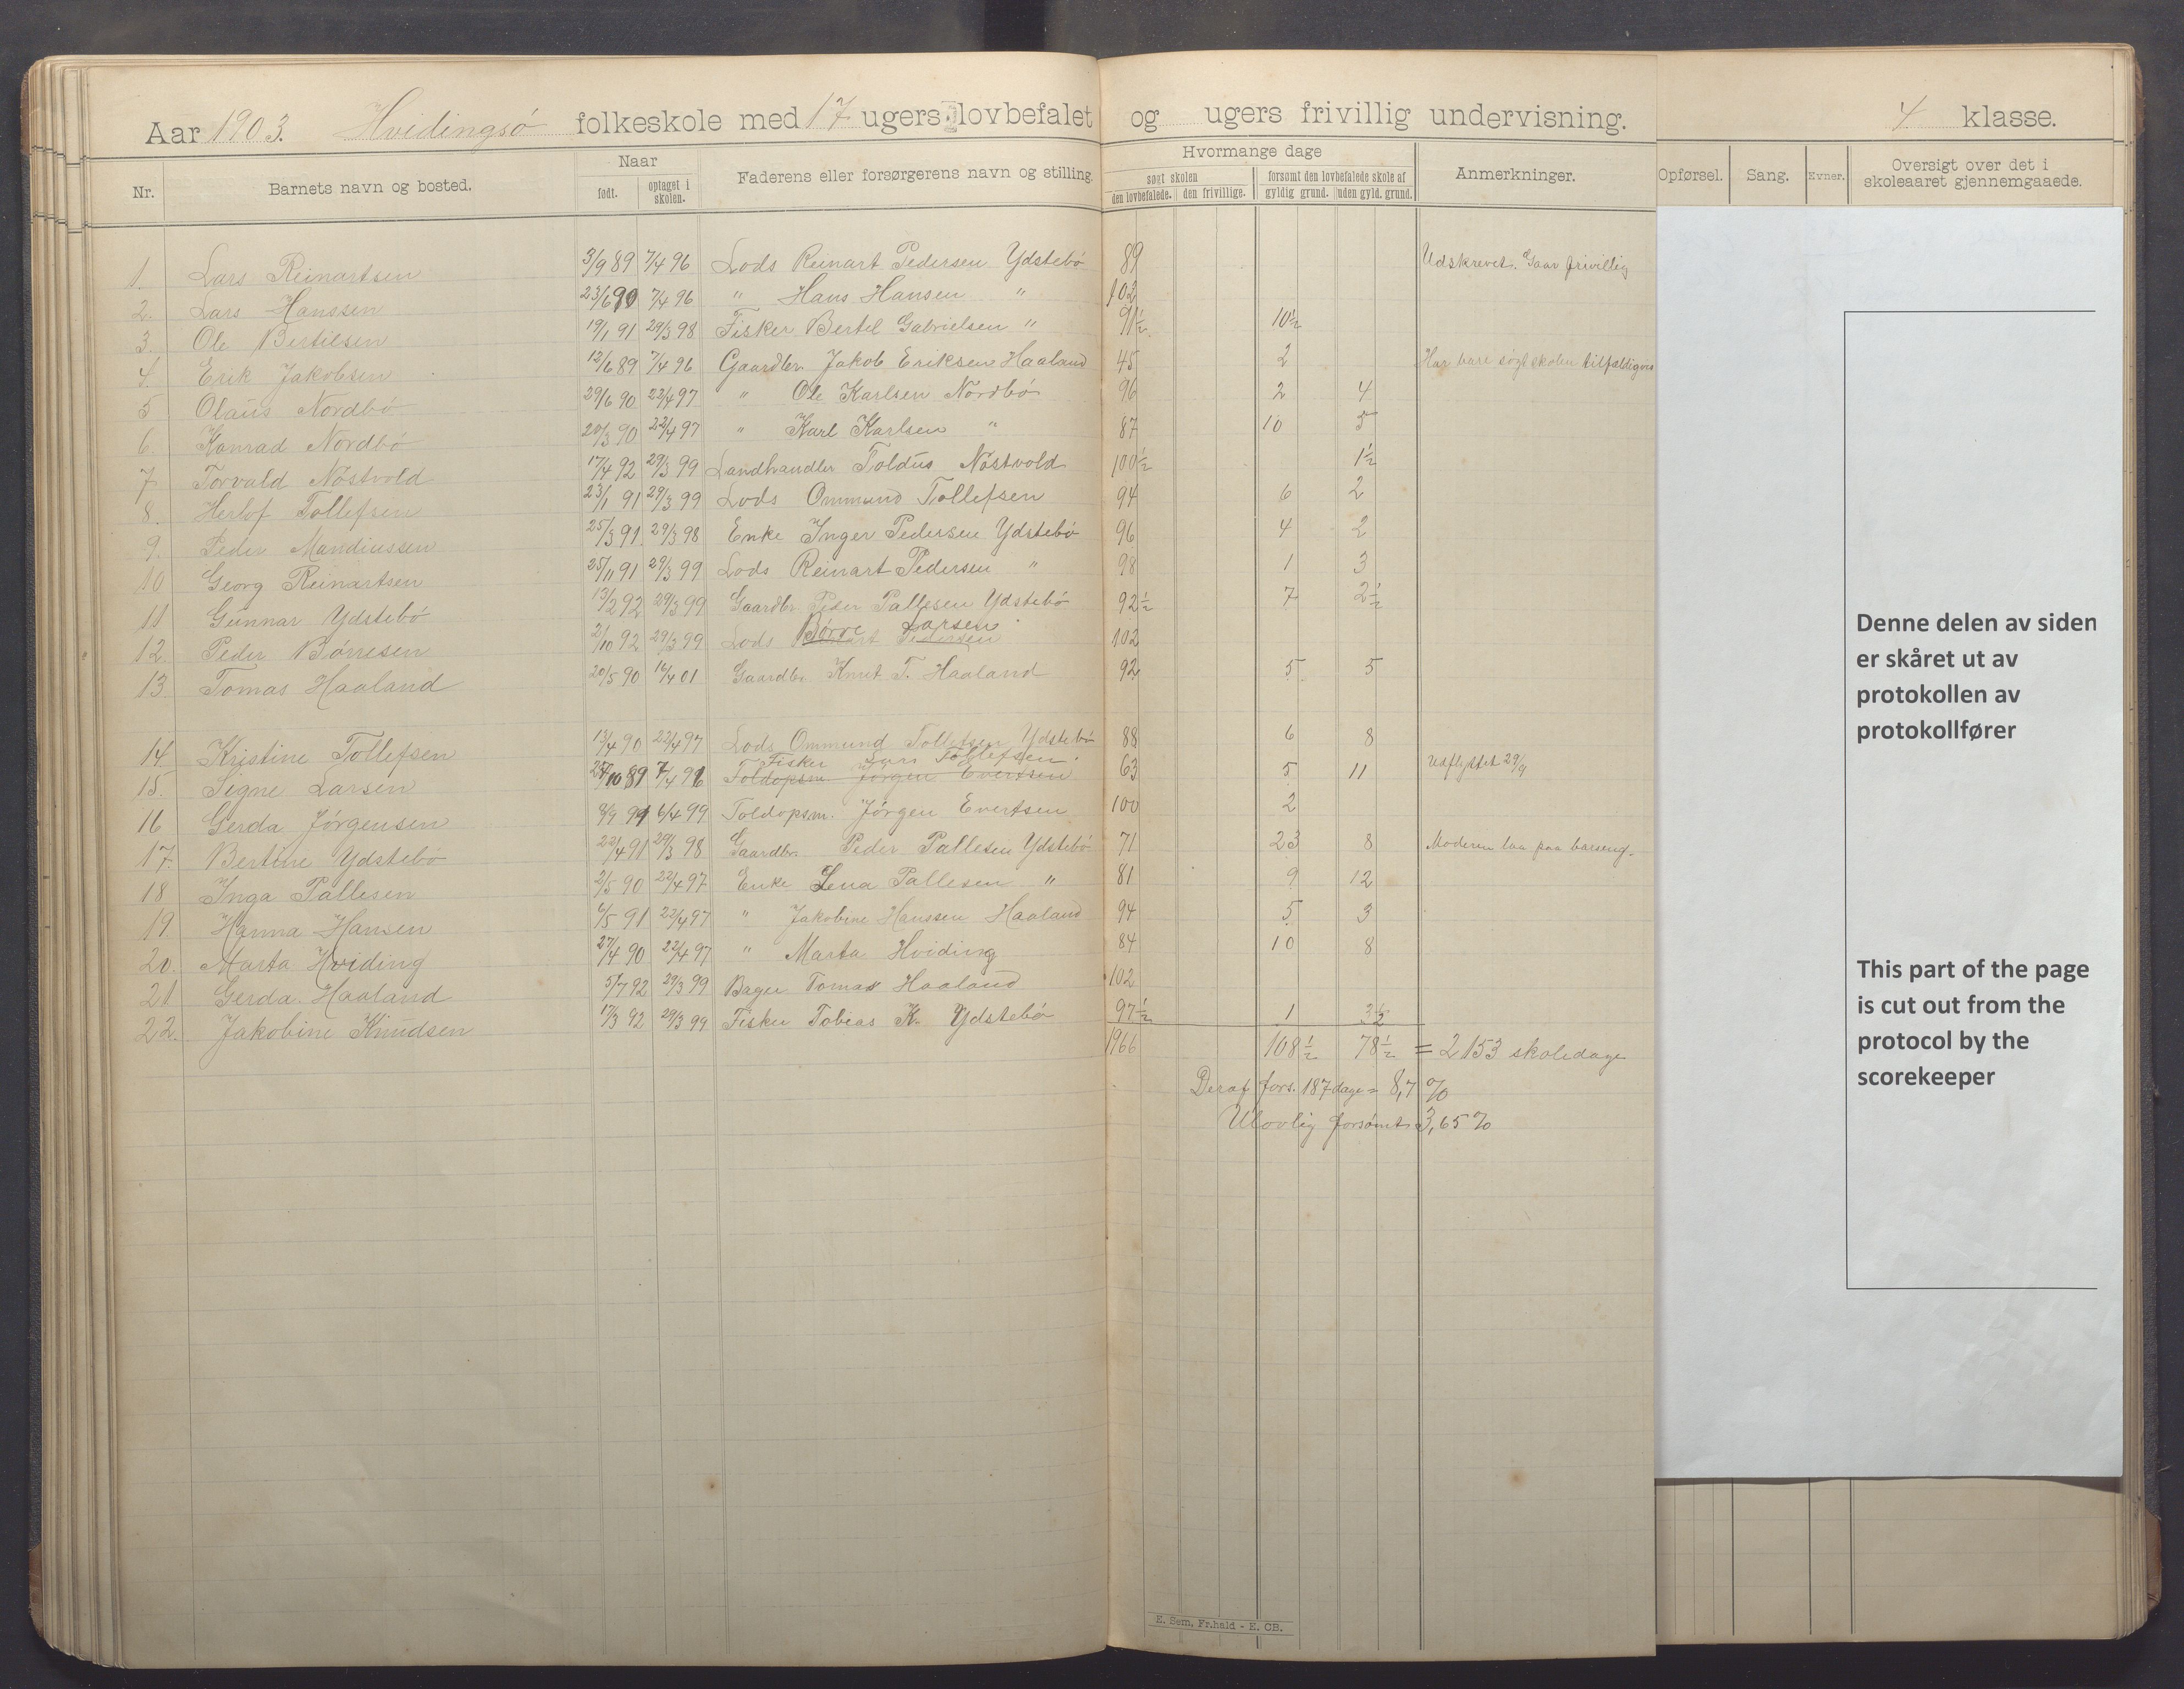 Aar 1903. Hvidingsö folkeskole med 17 ugers lovbefalet og ugers frivillig undervisning. 4 klasse.
Nr. Barnets navn og bosted. Naar født. optaget i skolen. Faderens eller forsørgerens navn og stilling. Hvormange dage søgt skolen den lovbefalede. den frivillige. forsømt den lovbefalede skole af gyldig grund. uden gyld. grund. Anmerkninger. Opførsel. Sang. Evner. Oversigt over det i skoleaaret gjennemgaaede.
1. Lars Reinartsen 3/9 89 7/4 96 Lods Reinart Pedersen Ydstebö 89 Udskrevet. Gaar frivillig
2. Lars Hanssen 23/6 90 7/4 96 " Hans Hansen " 102
3. Ole Bertilsen 19/1 91 29/3 98 Fisker Bertel Gabrielsen " 91½ 10½
4. Erik Jakobsen 12/6 89 7/4 96 Gaardbr. Jakob Eriksen Haaland 45 2 Har bare søgt skolen tilfældigvis
5 Olaus Nordbö 29/6 90 22/4 97 " Ole Karlsen Nordbö 96 2 4
6. Konrad Nordbö 20/3 90 22/4 97 " Karl Karlsen " 87 10 5
7 Torvald Nöstvold 17/4 92 29/3 99 Landhandler Toldus Nöstvold 100½ 1½
8. Herlof Tollefsen 23/1 91 29/3 99 Lods Ommund Tollefsen 94 6 2
9. Peder Mandiussen 25/3 91 29/3 98 Enke Inger Pedersen Ydstebö 96 4 2
10 Georg Reinartsen 25/11 91 29/3 99 Lods Reinart Pedersen " 98 1 3
11 Gunnar Ydstebö 13/2 92 29/3 99 Gaardbr. Peder Pallesen Ydstebö 92½ 7 2½
Börre Larsen
12. Peder Börresen 2/10 92 29/3 99 Lods Reinart Pedersen 102
13. Tomas Haaland 20/5 90 16/4 01 Gaardbr. Knut T. Haaland 92 5 5
14. Kristine Tollefsen 13/4 90 22/4 97 Lods Ommund Tollefsen Ydstebö 88 6 8
Fisker Lars Tollefsen
15. Signe Larsen 25/10 89 7/4 96 Toldopsm. Jörgen Evertsen 63 5 11 Udflyttet 29/9
16 Gerda Jörgensen 8/9 91 6/4 99 Toldopsm. Jörgen Evertsen 100 2
17. Bertine Ydstebö 22/4 91 29/3 98 Gaardbr. Peder Pallesen Ydstebö 71 23 8 Moderen laa paa barseng.
18 Inga Pallesen 2/5 90 22/4 97 Enke Lena Pallesen " 81 9 12
19. Hanna Hansen 6/5 91 22/4 97 " Jakobine Hanssen Haaland 94 5 3
20. Marta Hviding 27/4 90 22/4 97 " Marta Hviding 84 10 8
21 Gerda Haaland 5/7 92 29/3 99 Bager Tomas Haaland 102
22. Jakobine Knudsen 17/3 92 29/3 99 Fisker Tobias K. Ydstebö 97½ 1 3½
1966 108½ 78½ = 2153 skoledage
Deraf fors. 187 dage = 8,7 %
Ulovlig forsömt 3,65 %
E. Sem, Fr.hald - E. CB.
Denne delen av siden
er skåret ut av
protokollen av
protokollfører
This part of the page
is cut out from the
protocol by the
scorekeeper